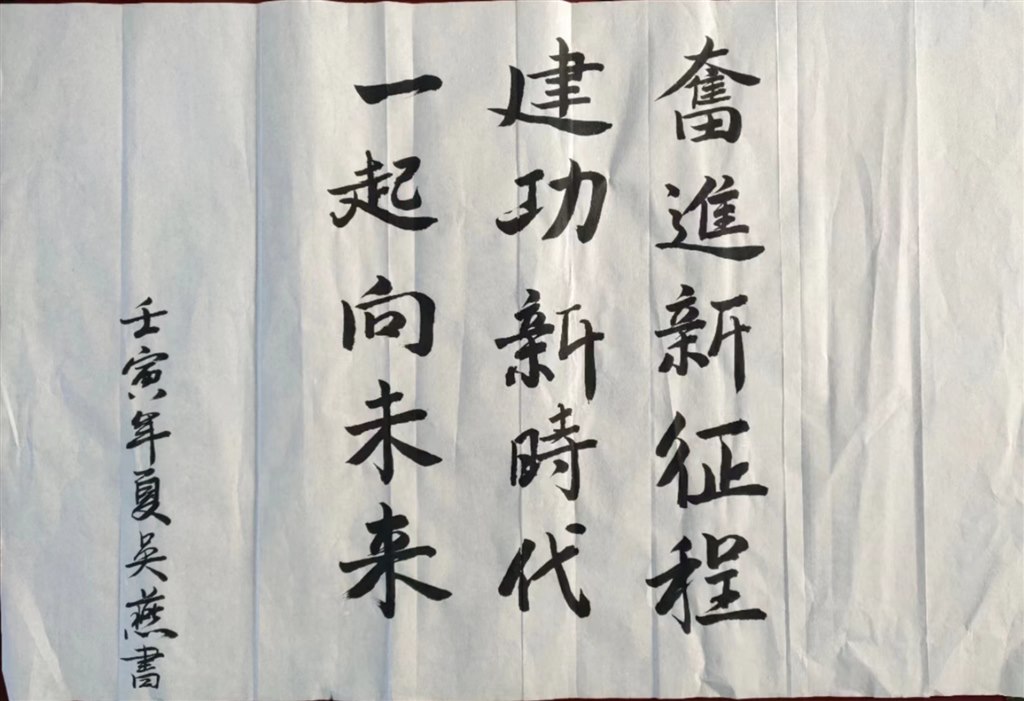 奮進新征程
建功新時代
一起向未来
壬寅年夏吴燕書